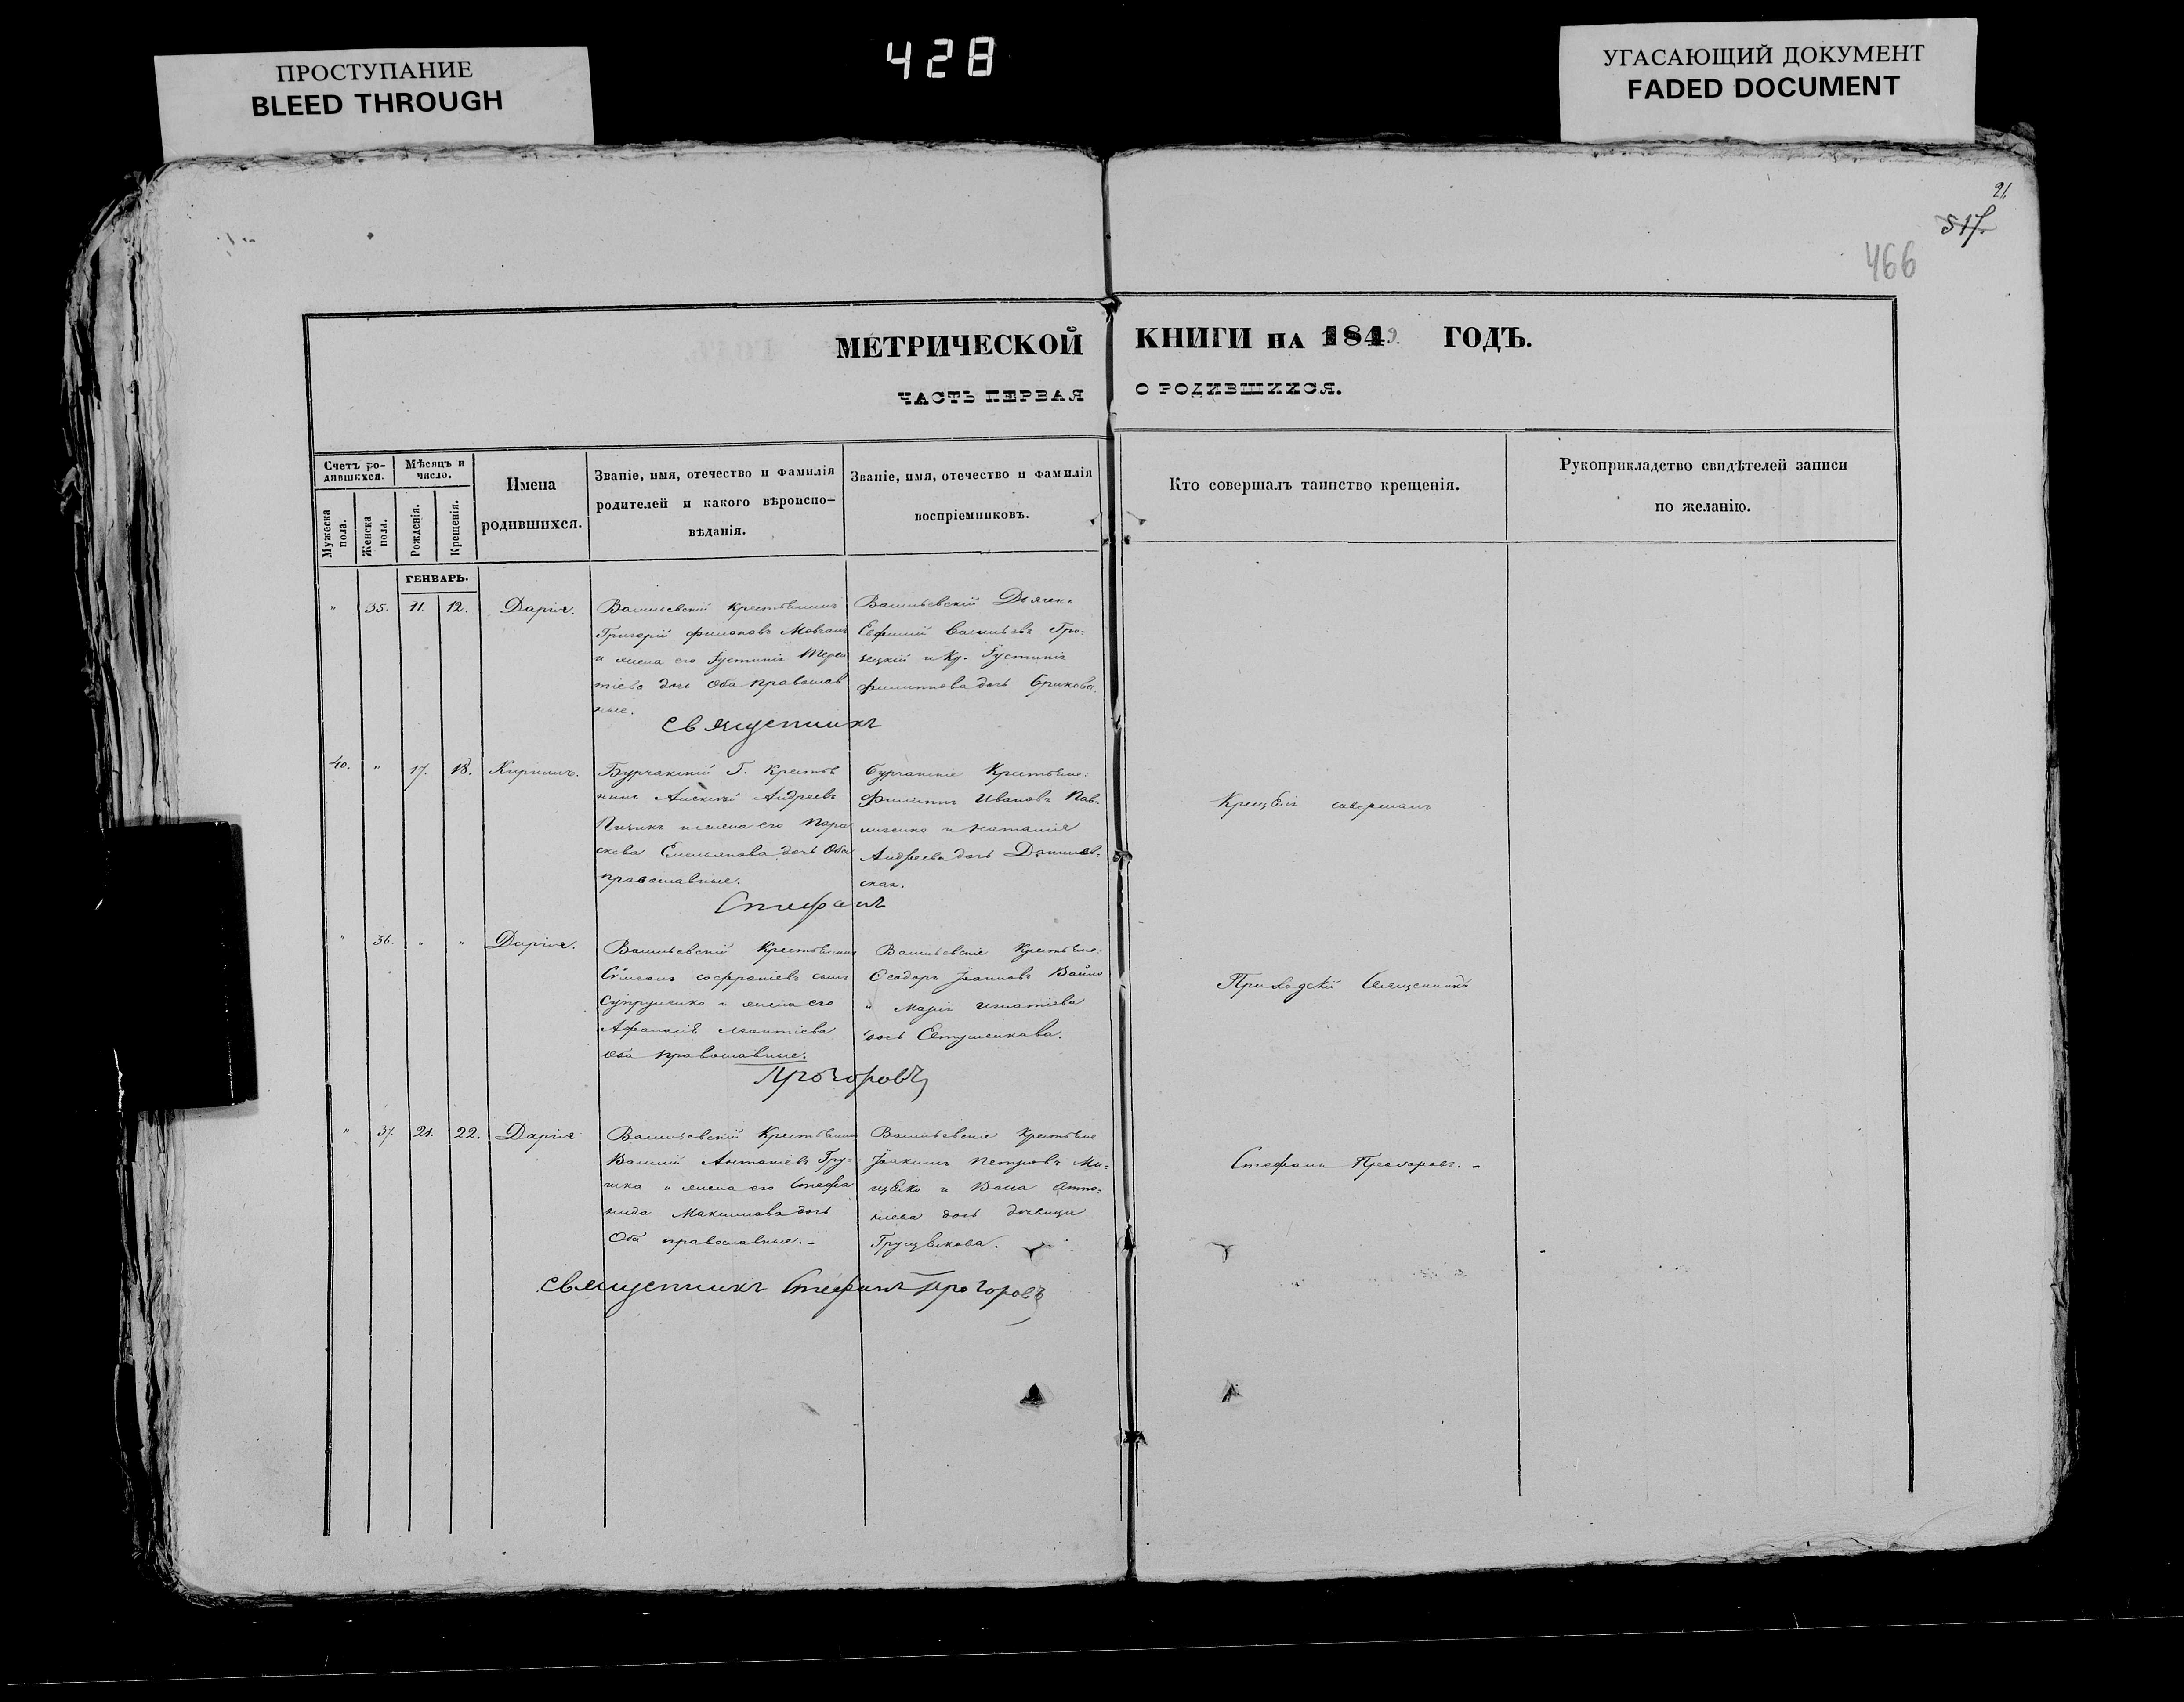 428
ПРОСТУПАНИЕ
BLEED THROUGH
УГАСАЮЩИЙ ДОКУМЕНТ
FADED DOCUMENT
21
517.
466
МЕТРИЧЕСКОЙ КНИГИ НА 1849 ГОДЪ.
ЧАСТЬ ПЕРВАЯ О РОДИВШИХСЯ.
Счетъ ро-
дившихся.
Мужеска пола.
Женска пола.
Мѣсяцъ и
число.
Рожденія.
Крещенія.
Имена
родившихся.
Званіе, имя, отечество и фамилія
родителей и какого вѣроиспо-
вѣданія.
Званіе, имя, отечество и фамилія
воспріемниковъ.
Кто совершалъ таинство крещенія.
Рукоприкладство свидѣтелей записи
по желанію.
ГЕНВАРЬ.
" 35. 11. 12. Дарія.
Васильевскій крестьянинъ
Григорій Мовчанъ
и жена его Іустинія Терен
тіева дочь Оба православ
ные.
Васильевскій Дьячекъ
Евфимій Васильевъ Гро-
и Кр. Іустинія
Филиппова дочь
Священникъ
40. " 17. 18. Кириллъ.
Бурчакскій Г. Крестья
нинъ Алексѣй Андреевъ
и жена его Пара
скева Емельянова дочь Оба
православные.
Бурчакскіе Крестьяне:
Филиппъ Ивановъ Пав-
личенко и Наталія
Андреева дочь
ская.
Стефанъ
" 36. " " Дарія.
Васильевскій Крестьянинъ
Симеонъ Софроніевъ сынъ
Супруненко и жена его
Афанасія Леонтіева
Оба православные.
Васильевскіе Крестьяне:
Ѳеодоръ Іоанновъ
и Марія Игнатіева
дочь Евтушенкова.
Прохоровъ
" 37. 21. 22. Дарія
Васильевскій Крестьянинъ
Василій Антоніевъ Гру-
и жена его Стефа
нида Максимова дочь
Оба православные.-
Васильевскіе Крестьяне
Іоакимъ Петровъ Ми-
щенко и Васса Анто-
ніева дочь дѣвица
Священникъ Стефанъ Прохоровъ
Крещеніе совершалъ
Приходскій Священникъ
Стефанъ Прохоровъ.-